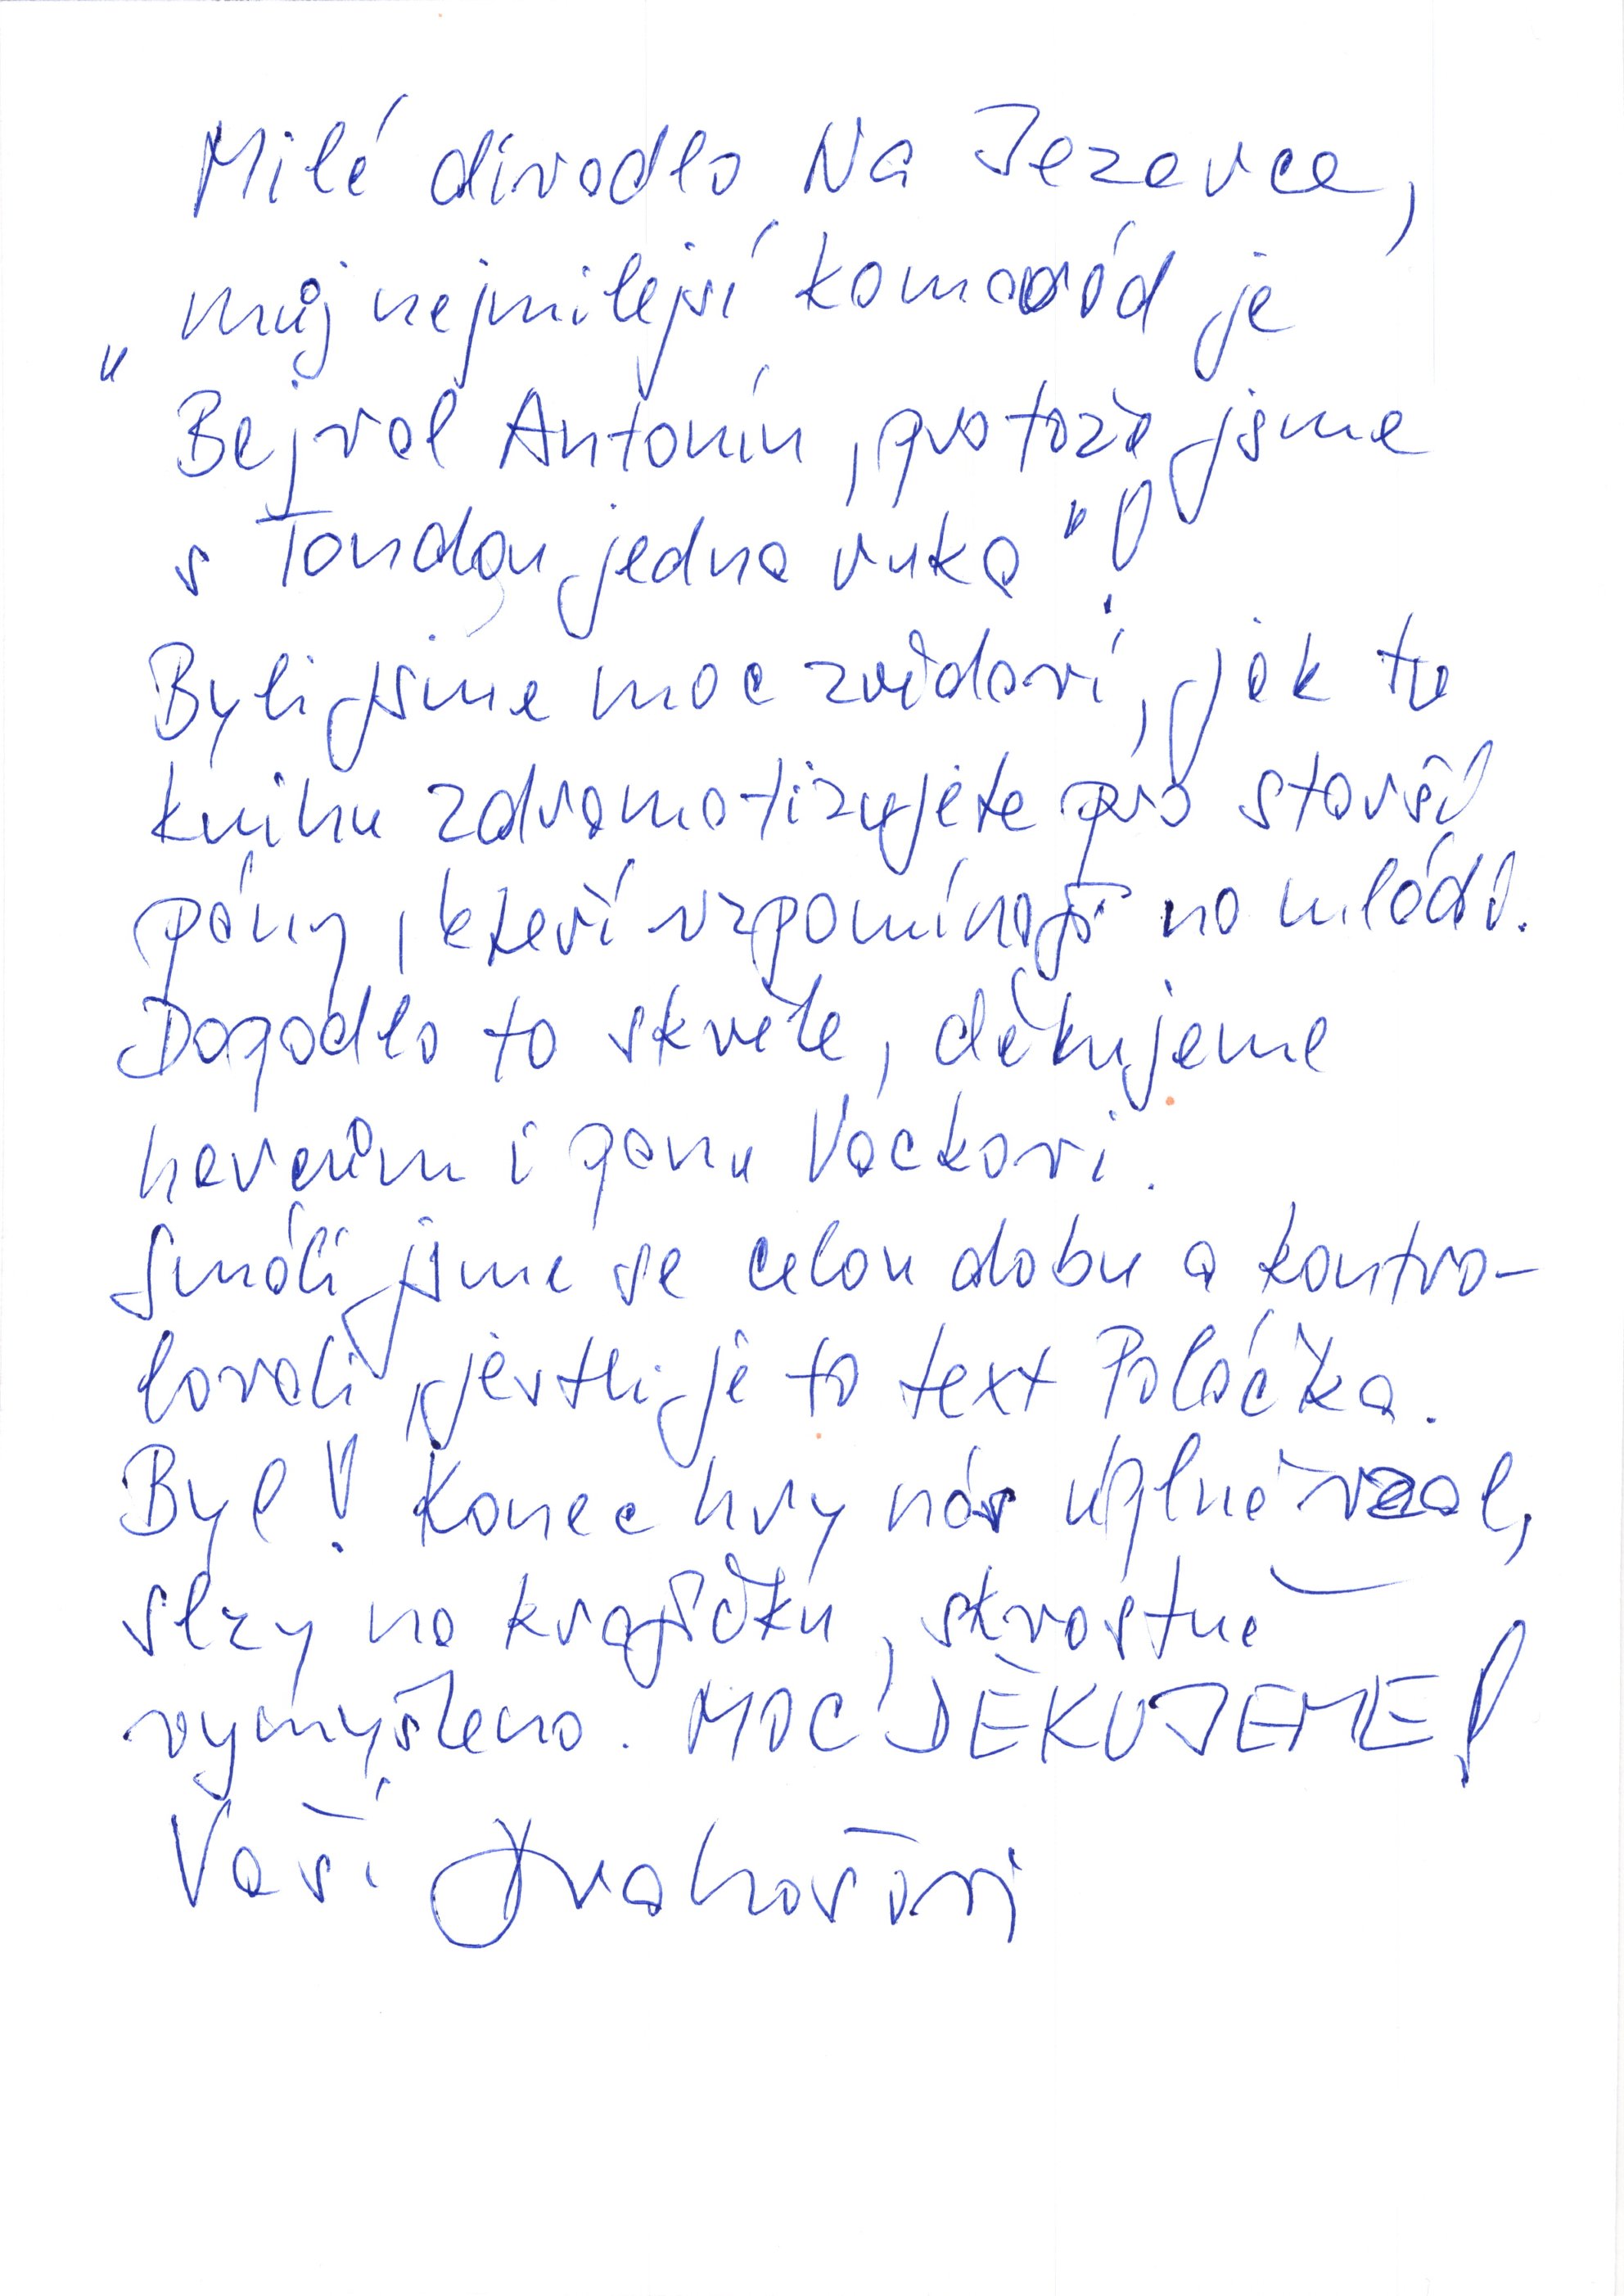 Milé divadlo Na Jezerce,
„můj nejmilejší kamarád je
Bejval Antonín, protože jsme
s Tondou jedna ruka"!
Byli jsme moc zvědaví, jak tu
knihu zdramatizujete pro starší
pány, kteří vzpomínají na mládí.
Dopadlo to skvěle, děkujeme
hercům i panu Vackovi.
Smáli jsme se celou dobu a kontro-
lovali, jestli je to text Poláčka.
Byl! Konec hry nás úplně vzal,
slzy na krajíčku, skvostně
vymyšleno. MOC DĚKUJEME!
Vaši